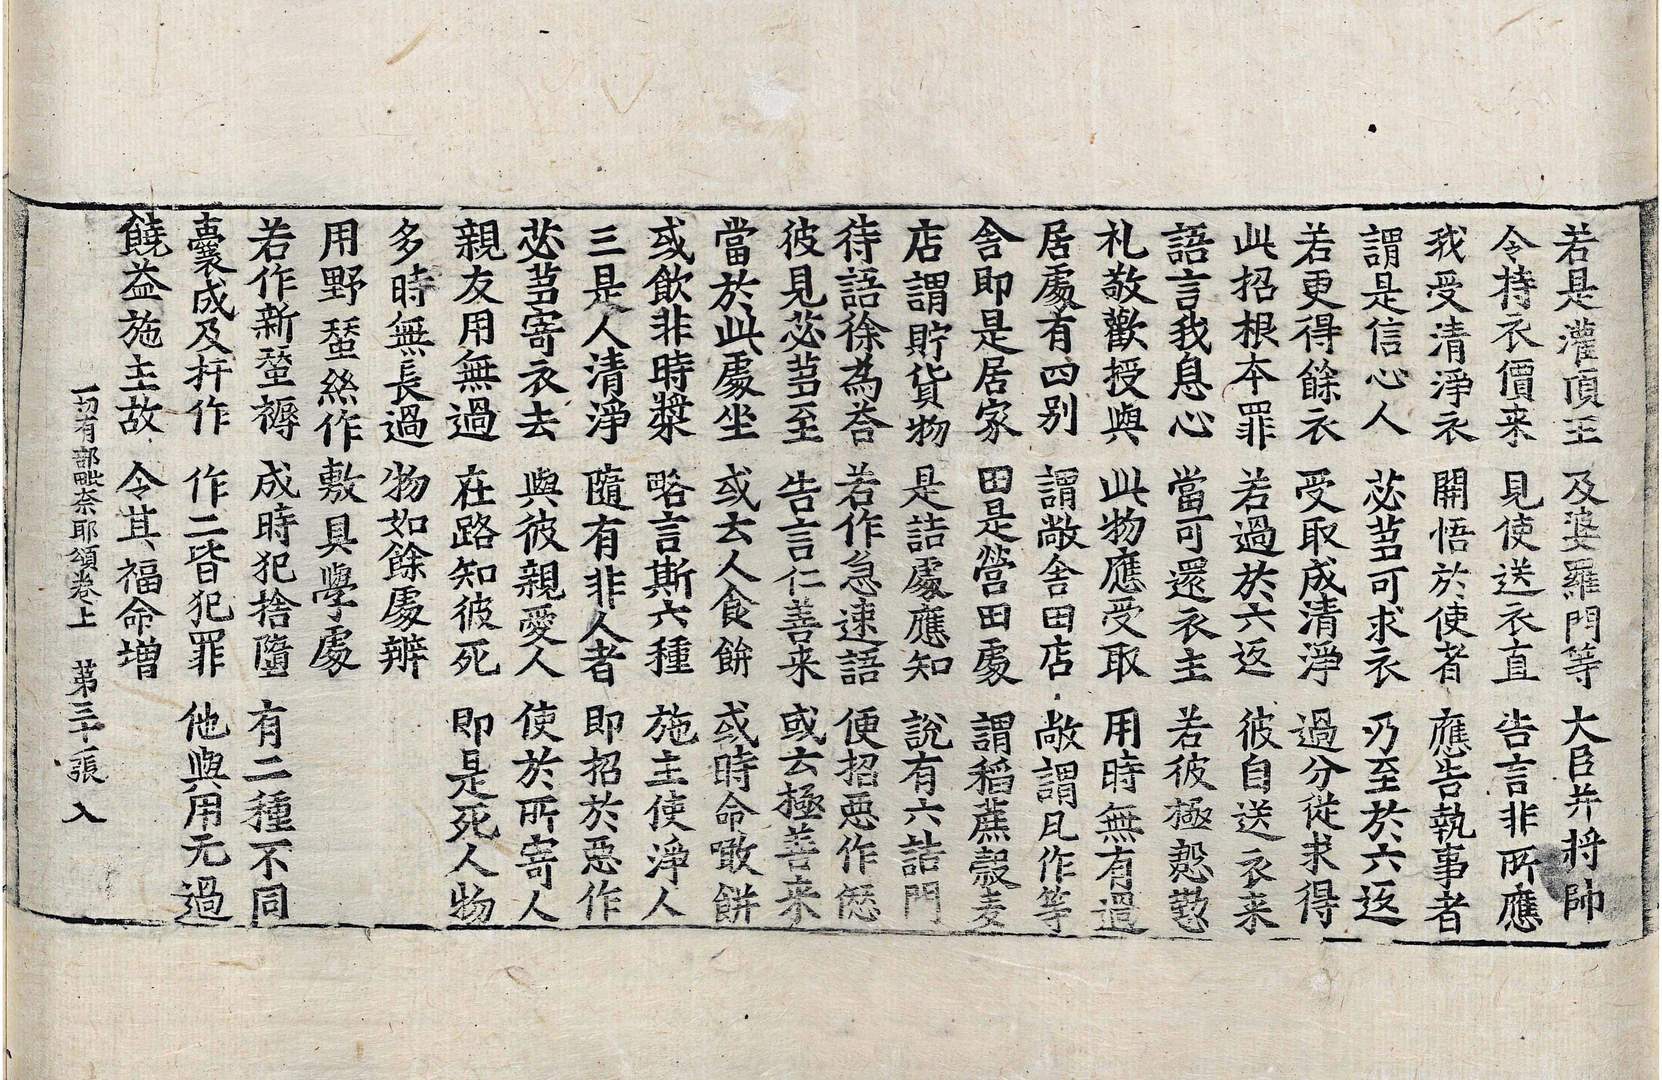 若是灌頂王 及婆羅門等 大臣并將帥
令持衣價来 見使送衣直 告言非所應
我受清淨衣 開悟於使者 應告執事者
謂是信心人 苾芻可求衣 乃至於六返
若更得餘衣 受取成清淨 過分從求得
此招根本罪 若過於六返 彼自送衣来
語言我息心 當可還衣主 若彼極慇懃
礼敬歡授與 此物應受取 用時無有過
居處有四别 謂敞舍田店 敞謂凡作等
舍即是居家 田是營田處 謂稻蔗穀麦
店謂貯貨物 是詰處應知 說有六詰門
待語徐為荅 若作急速語 便招惡作愆
彼見苾芻至 告言仁善来 或云極善来
當於此處坐 或云人食餅 或時命噉餅
或飲非時漿 略言斯六種 施主使淨人
三是人清淨 隨有非人者 即招於惡作
苾芻寄衣去 與彼親愛人 使於所寄人
親友用無過 在路知彼死 即是死人物
多時無長過 物如餘處辦
用野蠶絲作敷具學處
若作新蠶褥 成時犯捨墮 有二種不同
囊成及扞作 作二皆犯罪 他與用无過
饒益施主故 令其福命增
一切有部毗奈耶頌卷上 第三十張 入